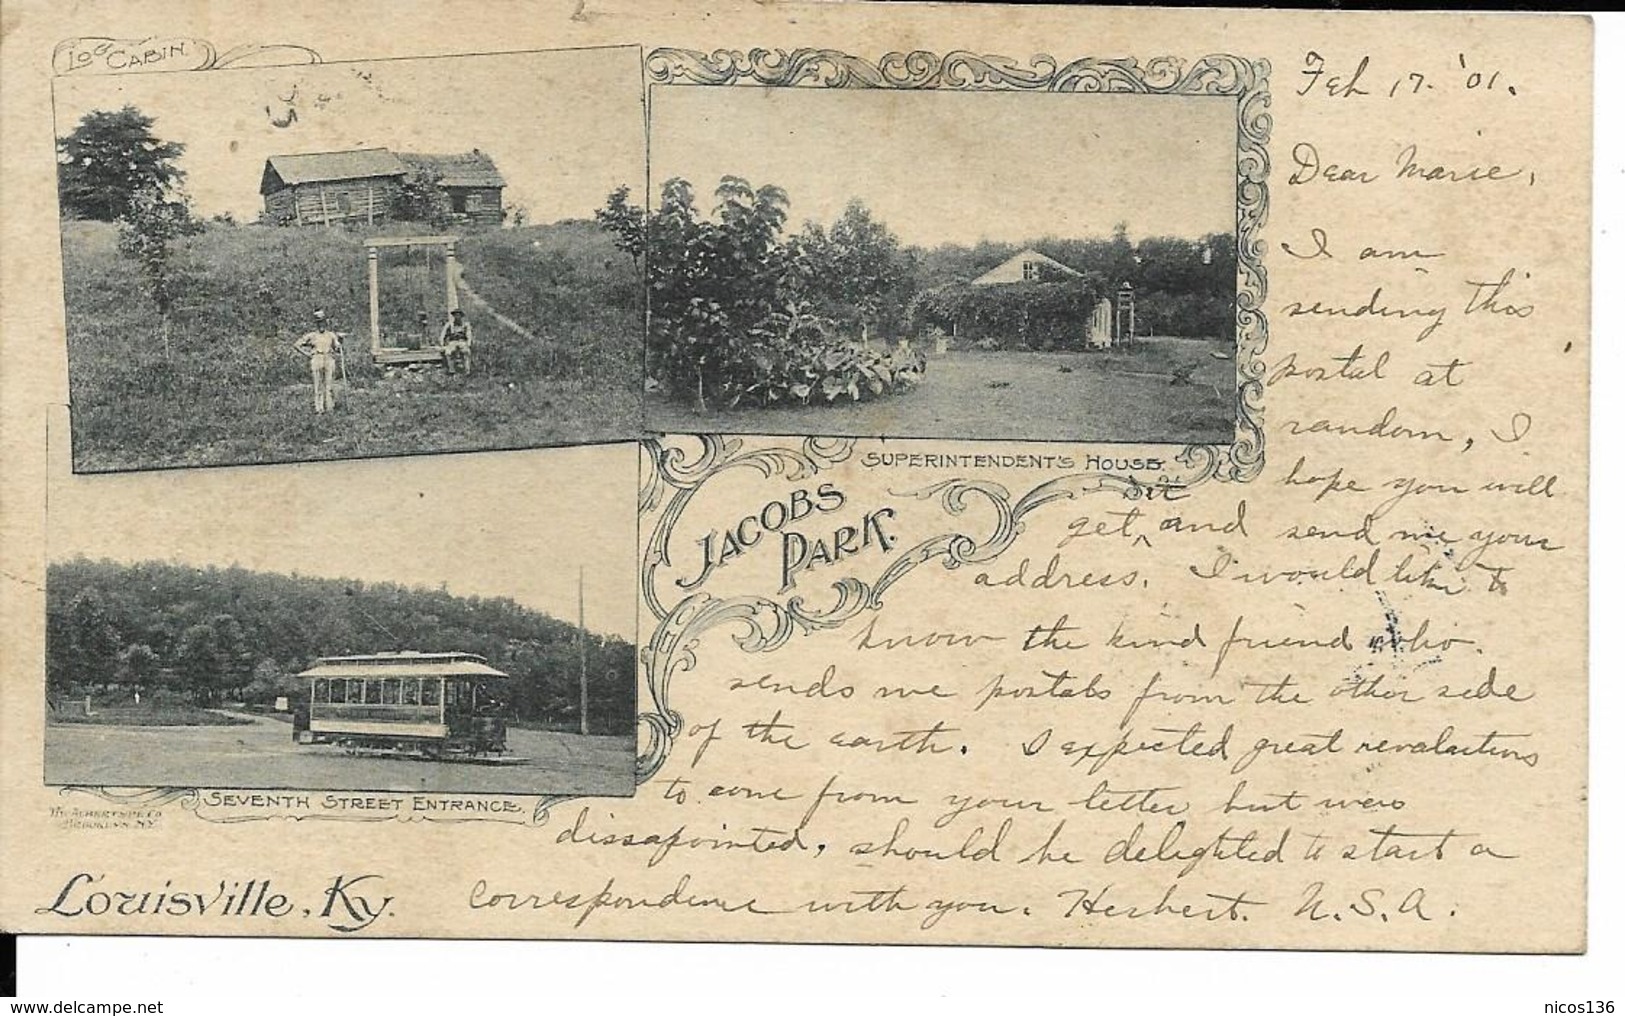 Log Cabin
Superintendent's House.
Jacobs
Park.
Seventh Street Entrance.
Brooklyn, N.Y.
Louisville, Ky.
Feb 17. '01.
Dear Marie,
I am
sending this
postal at
random, I
hope you will
get, it and send me your
address. I would like to
know the kind friend who
sends me postals from the other side
of the earth. I expected great revalactions
to come from your letter but was
dissapointed, should be delighted to start a
correspondence with you. Herbert. U.S.A.
nicos136